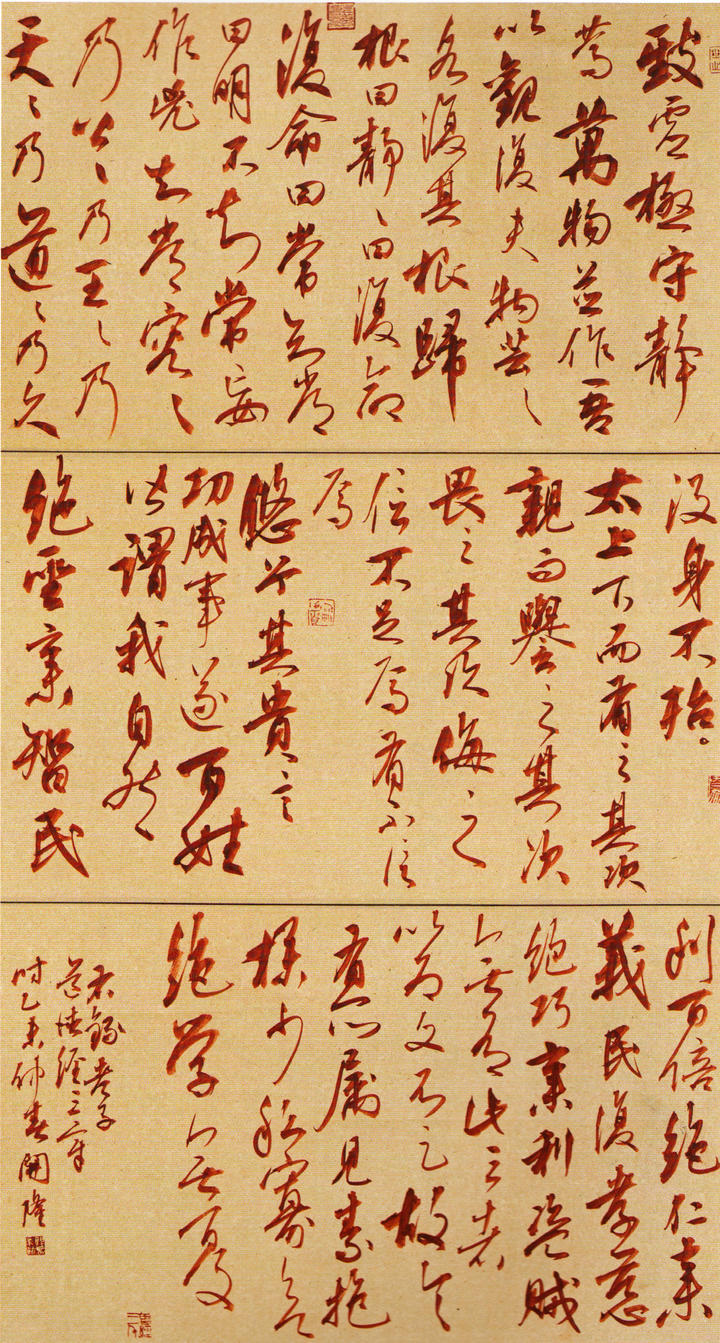 致虚極守静
篤萬物並作吾
以觀復夫物芸〻
各復其根歸
根曰静〻曰復命
復命曰常知常
曰明不知常妄
作凶知常容〻
乃公〻乃王〻乃
天〻乃道〻乃久
没身不殆。
太上下而有之其次
親而譽之其次
畏之其次侮之
信不足焉有不信
焉
悠兮其貴言
功成事遂百姓
皆謂我自然
絕聖棄智民
利百倍絕仁棄
義民復孝慈
絕巧棄利盗賊
無有此三者
以為文不足故令
有所屬見素抱
樸少私寡欲
絕學無憂
右錄老子
道德經三章
時乙未仲春開隆